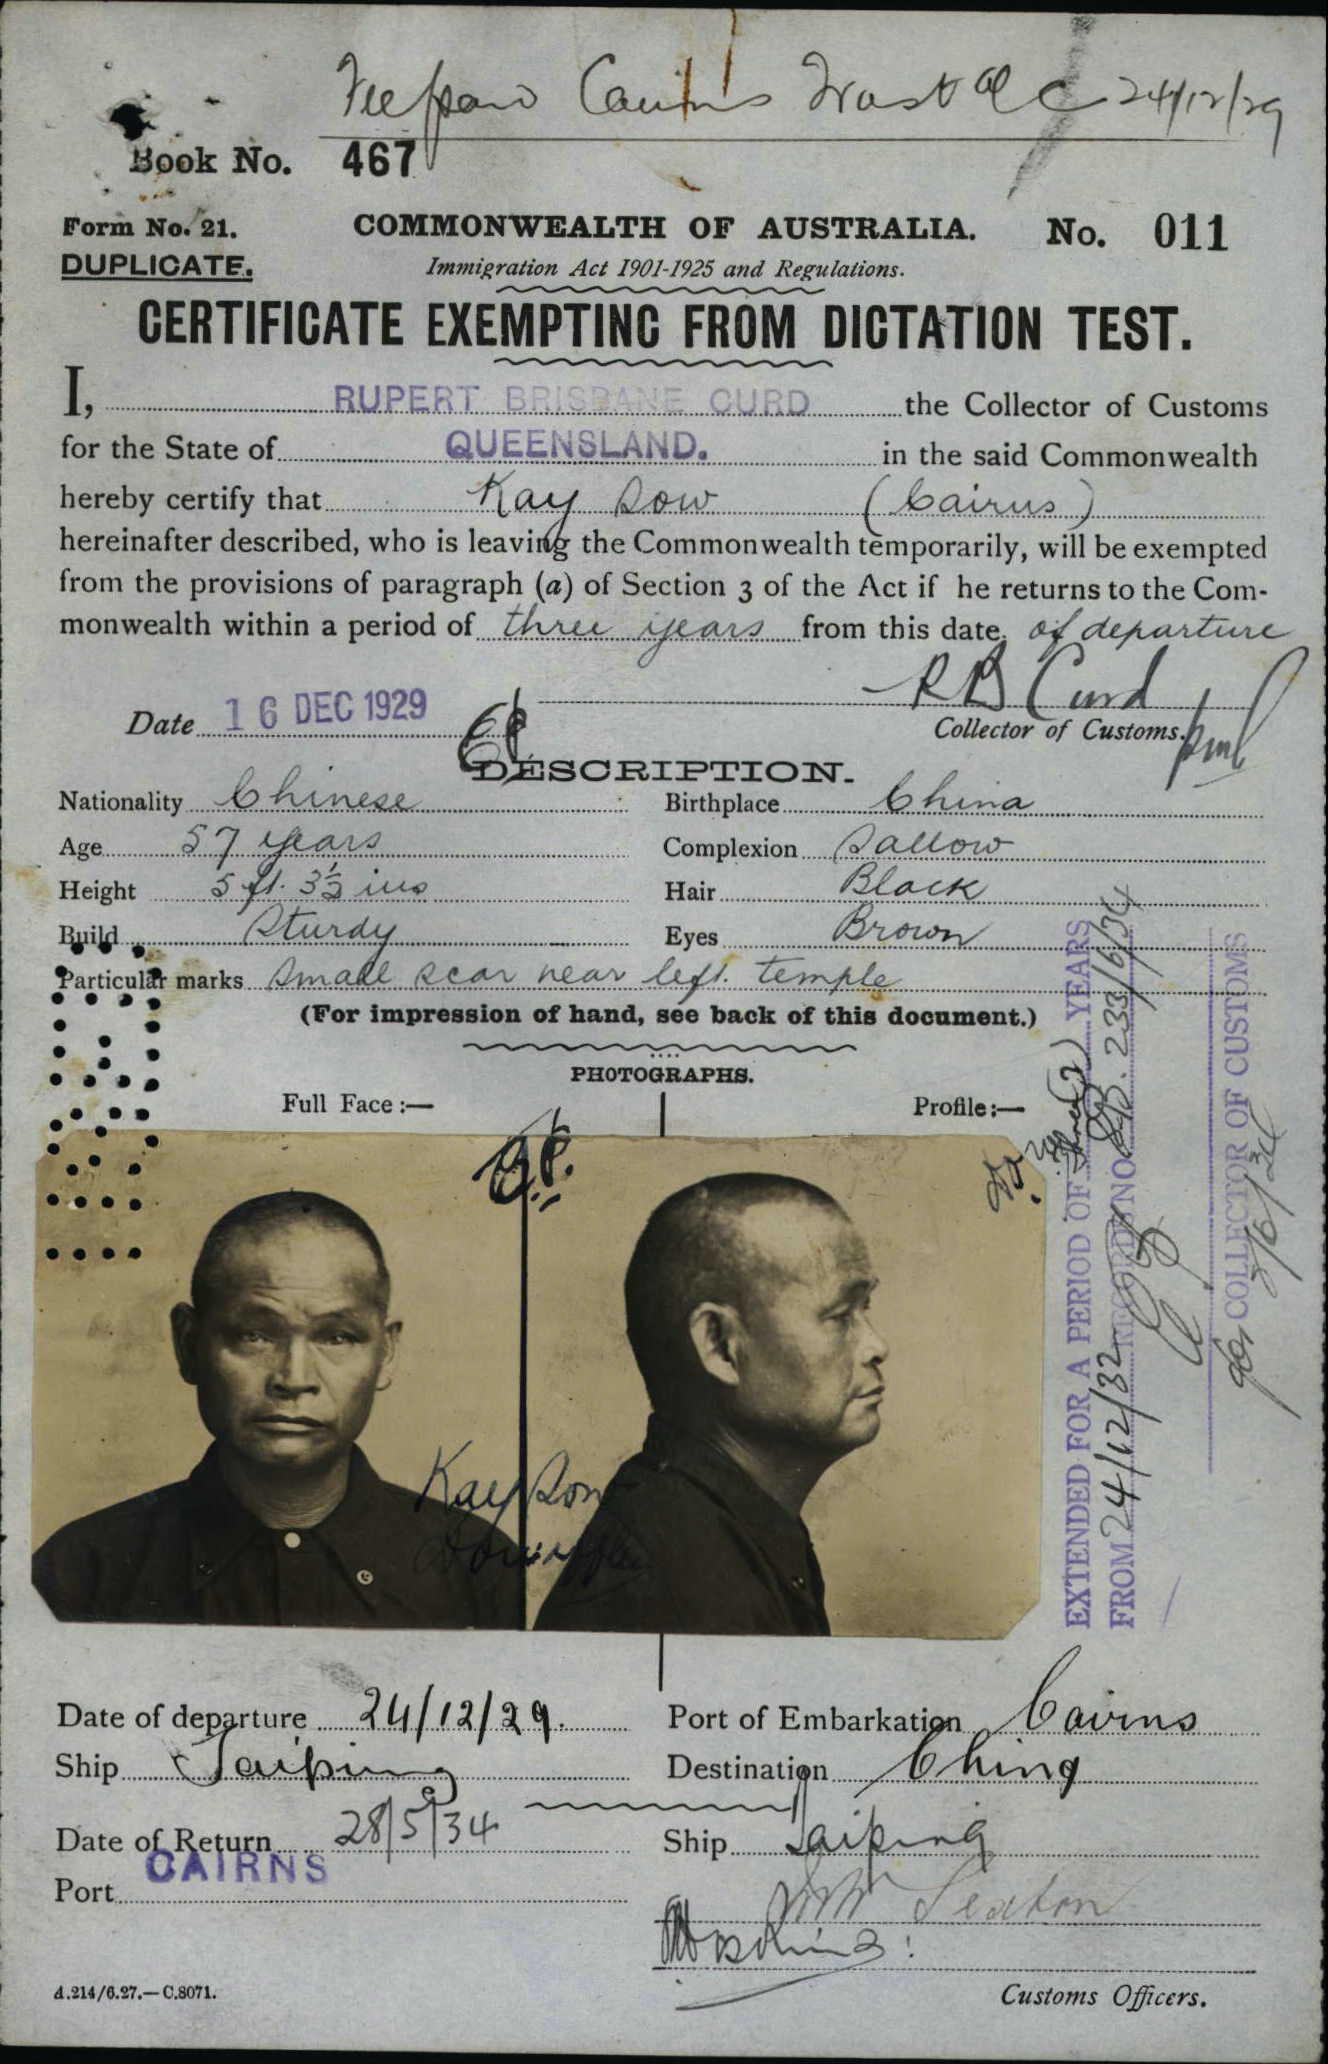 Cairns 24/12/29
Book No. 467
Form No. 21. COMMONWEALTH OF AUSTRALIA. No. 011
DUPLICATE. Immigration Act 1901-1925 and Regulations.
CERTIFICATE EXEMPTING FROM DICTATION TEST.
I, RUPERT BRISBANE CURD the Collector of Customs
for the State of QUEENSLAND. in the said Commonwealth
hereby certify that Kay Sow (Cairns)
hereinafter described, who is leaving the Commonwealth temporarily, will be exempted
from the provisions of paragraph (a) of Section 3 of the Act if he returns to the Com-
monwealth within a period of three years from this date. of departure
R B Curd
Date 16 DEC 1929 Collector of Customs.
DESCRIPTION.
Nationality Chinese Birthplace China
Age 57 years Complexion Sallow
Height 5 ft. 3½ ins Hair Black
Build Sturdy Eyes Brown
Particular marks Small scar near left. temple
(For impression of hand, see back of this document.)
PHOTOGRAPHS.
Full Face :— Profile :—
Kay Sow
EXTENDED FOR A PERIOD OF Three (3) YEARS
FROM 24/12/32 RECORDS NO. 233/6/34
for COLLECTOR OF CUSTOMS
Date of departure 24/12/29. Port of Embarkation Cairns
Ship Taiping Destination China
Date of Return 28/5/34 Ship Taiping
Port CAIRNS
Seaton
A.214/6.27.—C.8071. Customs Officers.